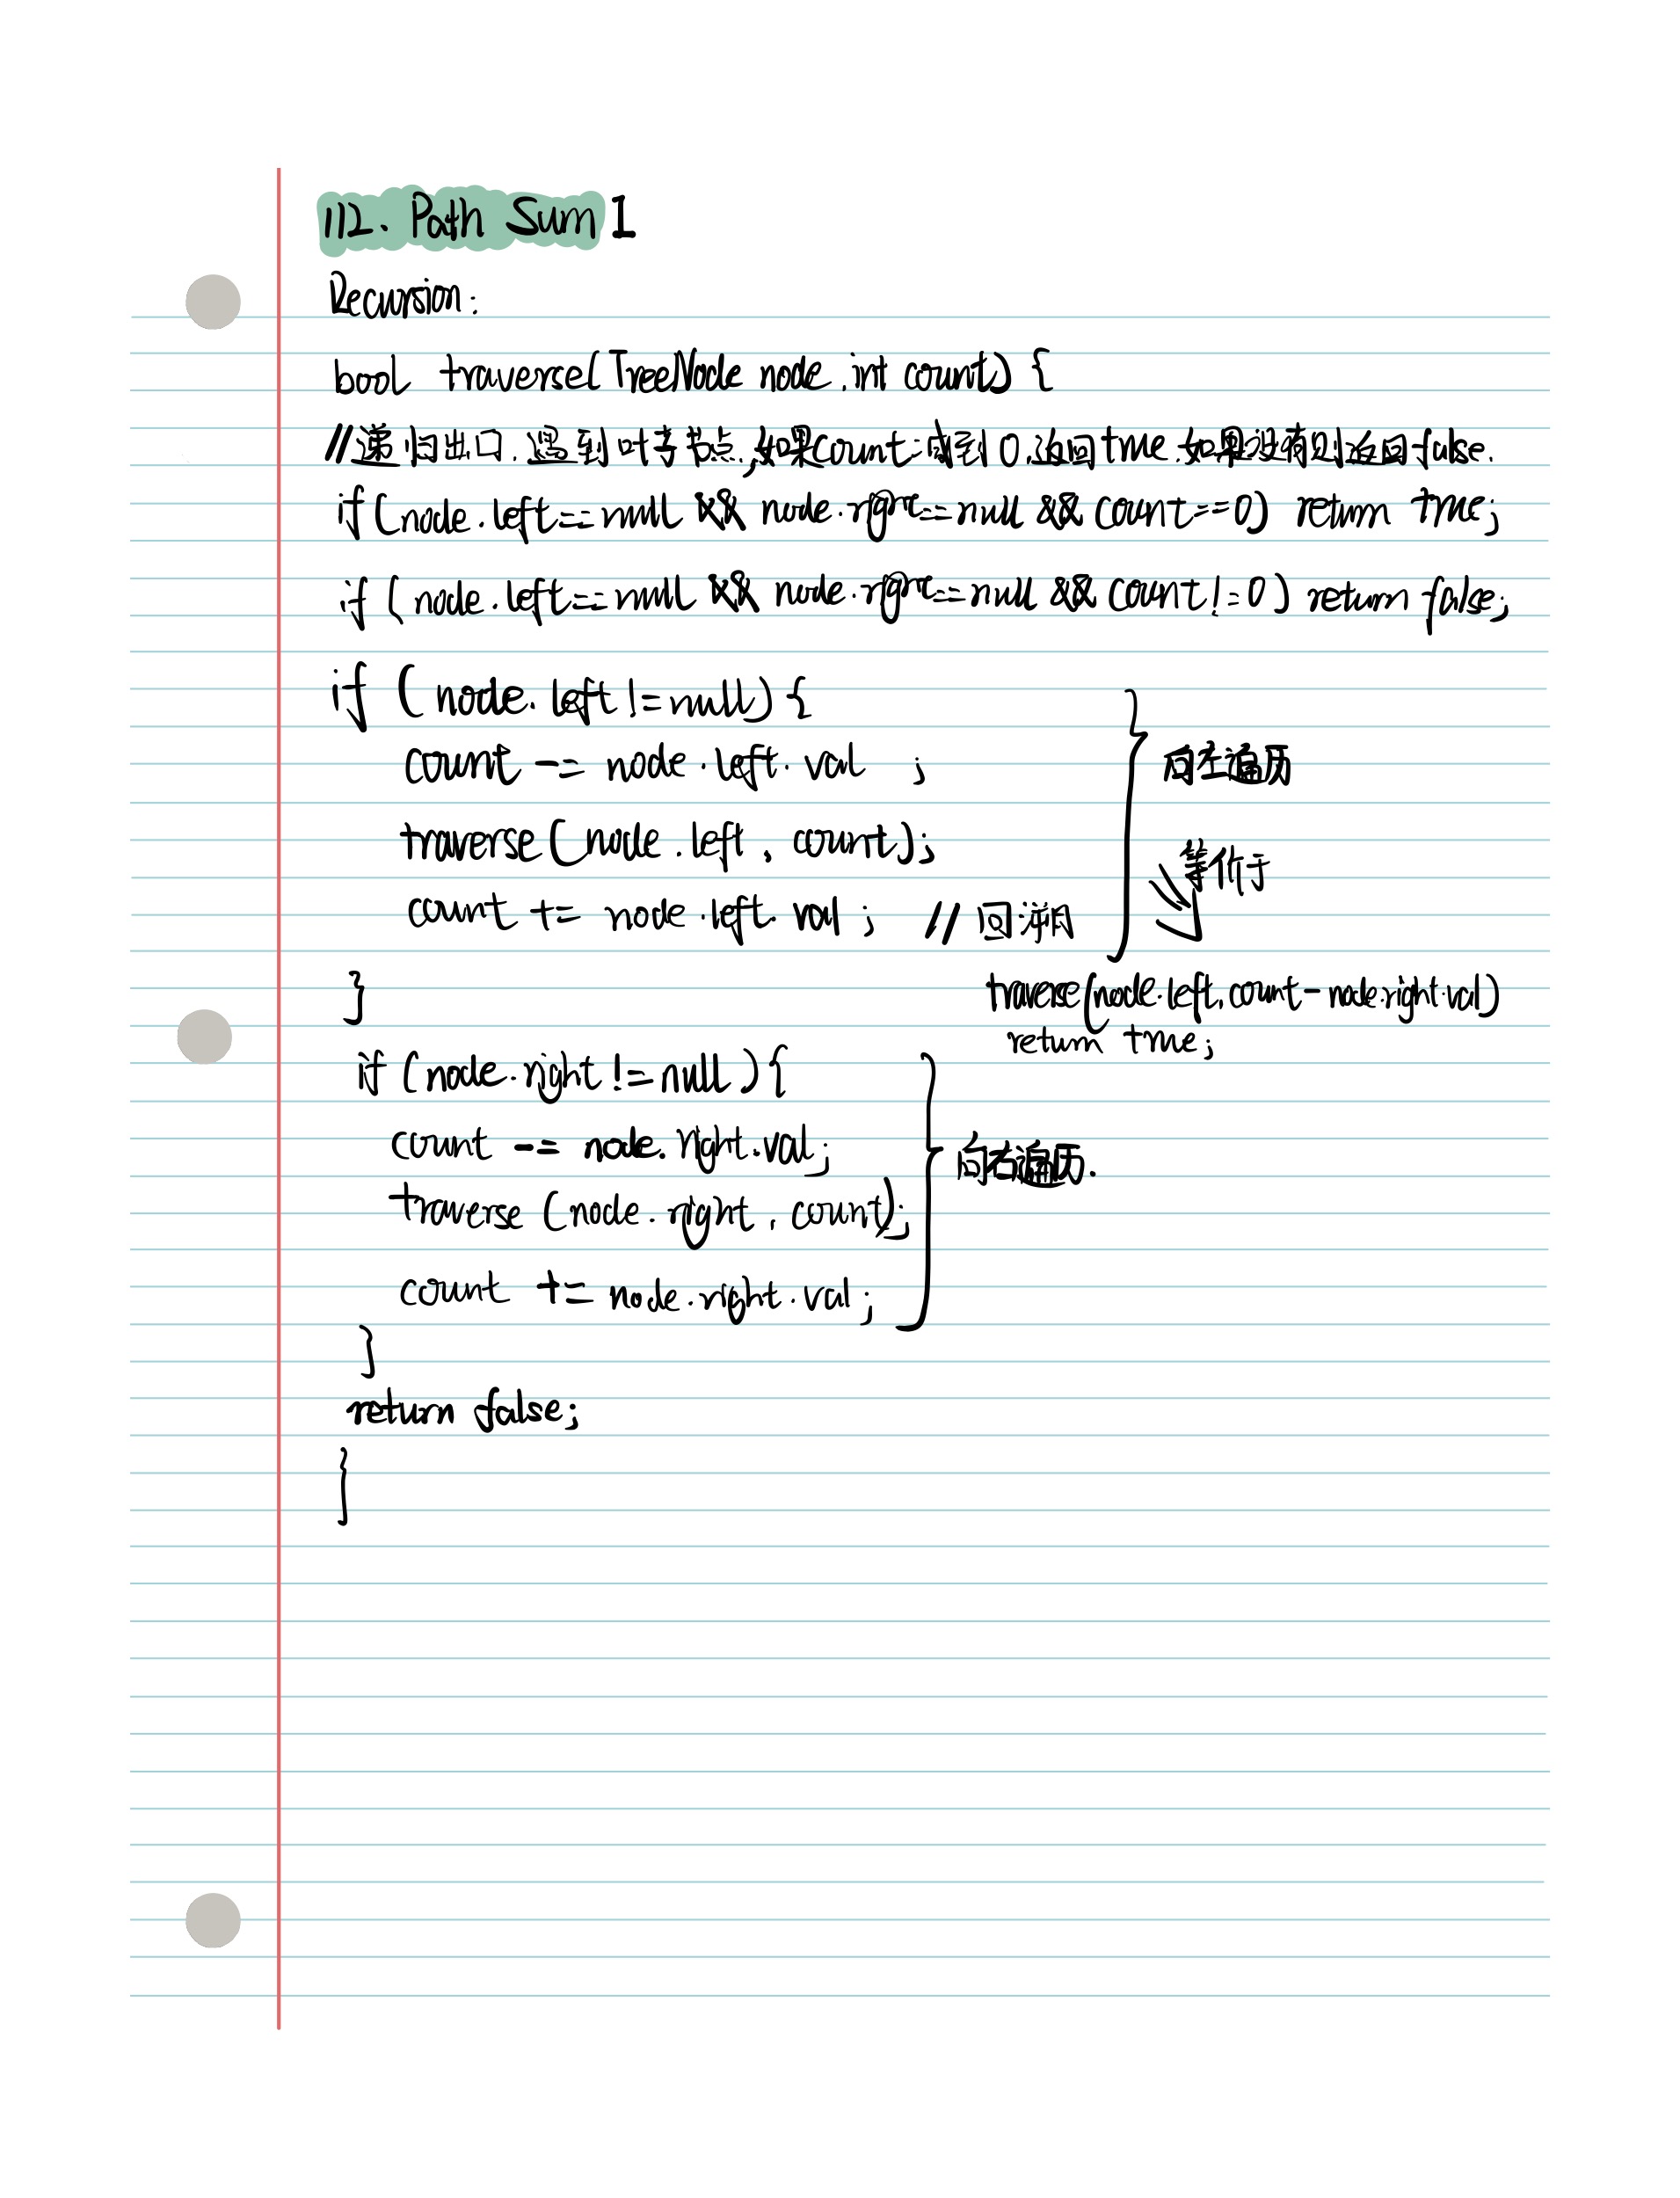 112. Path Sum I
Recursion:
bool traverse(TreeNode node, int count) {
//递归出口,遇到叶子节点,如果count减到0,返回true.如果没有则返回false.
if (node.left==null && node.right==null && count==0) return true;
if (node.left==null && node.right==null && count!=0) return false;
if (node.left!=null){
count -= node.left.val ;
向左遍历
traverse(node.left, count);
等价于
count += node.left.val; // 回溯
}
traverse(node.left, count-node.right.val)
return true;
if (node.right!=null){
count -= node.right.val;
向右遍历.
traverse (node.right, count);
count += node.right.val;
}
return false;
}